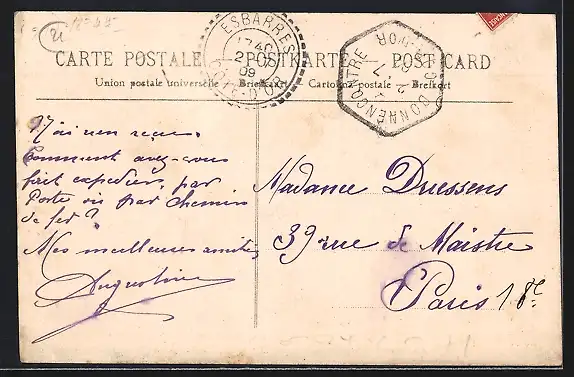 21
CARTE POSTALE POSTKARTE POST CARD
Union postale universelle Briefkaart Cartolina postale Brefkort
ESBARRES
17 AO
09
COTE-D'OR
BONNENCONTRE
COTE-D'OR
N'ai rien reçu.
Comment avez-vous
fait expédier, par
Poste ou par chemin
de fer ?
Mes meilleures amitiés
Augustine
Madame Duessens
39 rue de Maistre
Paris 18e